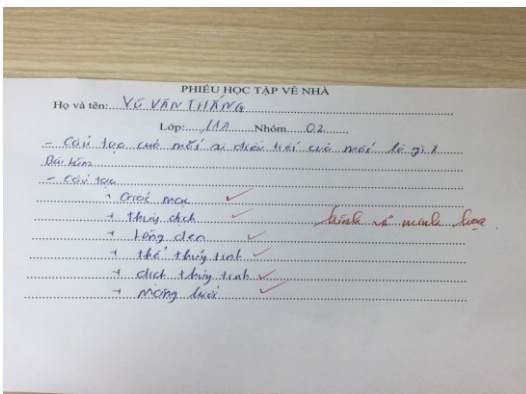 PHIẾU HỌC TẬP VỀ NHÀ
Họ và tên: VÕ VĂN THẮNG
Lớp: 11A Nhóm 02
- Cấu tạo của mắt là gì?
Bài làm
- Cấu tạo
+ Giác mạc
+ thủy dịch hình vẽ minh họa
+ lòng đen
+ thể thủy tinh
+ dịch thủy tinh
+ màng lưới